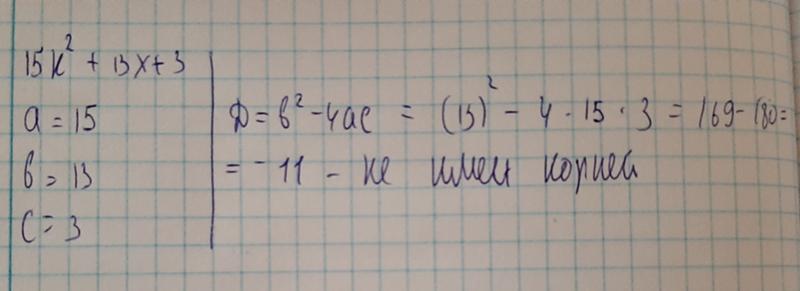 15x² + 13x + 3
a = 15
D = b² - 4ac = (13)² - 4 · 15 · 3 = 169 - 180 =
b = 13
= -11 - не имеет корней
c = 3